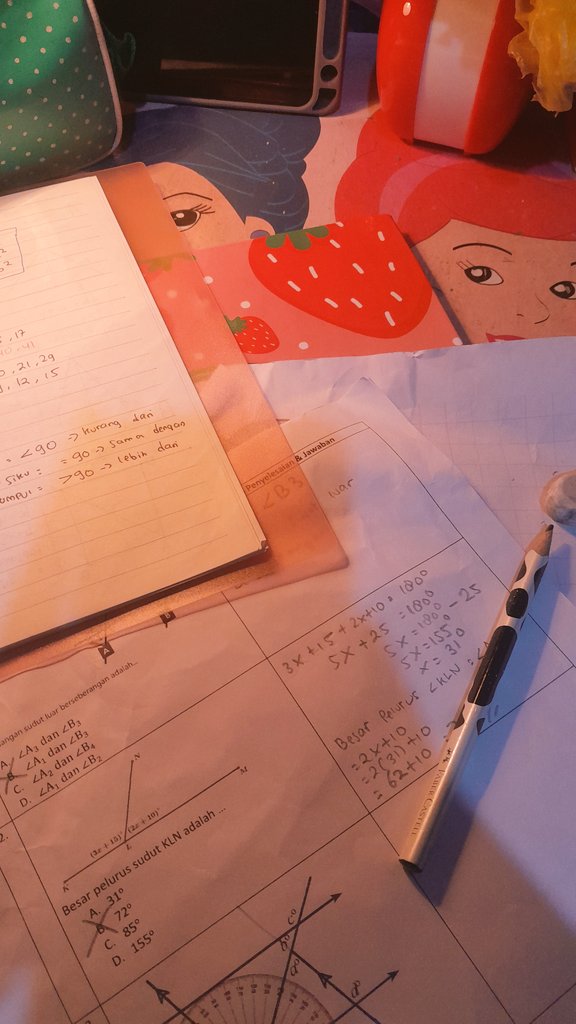 , 17
40, 41
, 21, 29
, 12, 15
= <90 → kurang dari
siku : = 90 → sama dengan
: >90 → lebih dari
Penyelesaian & Jawaban
∠B3
luar
sudut luar berseberangan adalah...
A. ∠A3 dan ∠B3
B. ∠A1 dan ∠B3
C. ∠A2 dan ∠B4
D. ∠A1 dan ∠B2
3x + 15 + 2x+10 = 180°
5x + 25 = 180°
5x = 180 - 25
5x = 155
x = 31
Besar pelurus ∠KLN = ∠
= 2x + 10
= 2(31) + 10
= 62 + 10
2.
N
M
(2x + 10)°
L
K
Besar pelurus sudut KLN adalah ...
A. 31°
B. 72°
C. 85°
D. 155°
FABER-CASTELL